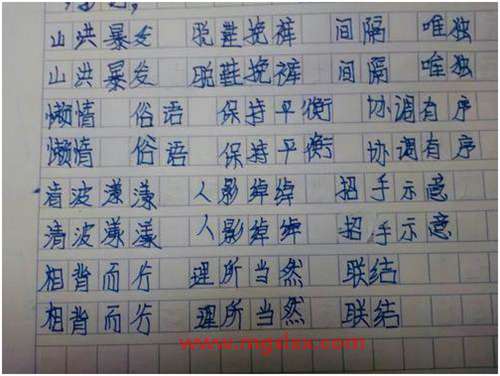 山洪暴发 脱鞋挽裤 间隔 唯独
山洪暴发 脱鞋挽裤 间隔 唯独
懒情 俗语 保持平衡 协调有序
懒情 俗语 保持平衡 协调有序
清波漾漾 人影绰绰 招手示意
清波漾漾 人影绰绰 招手示意
相背而行 理所当然 联结
相背而行 理所当然 联结